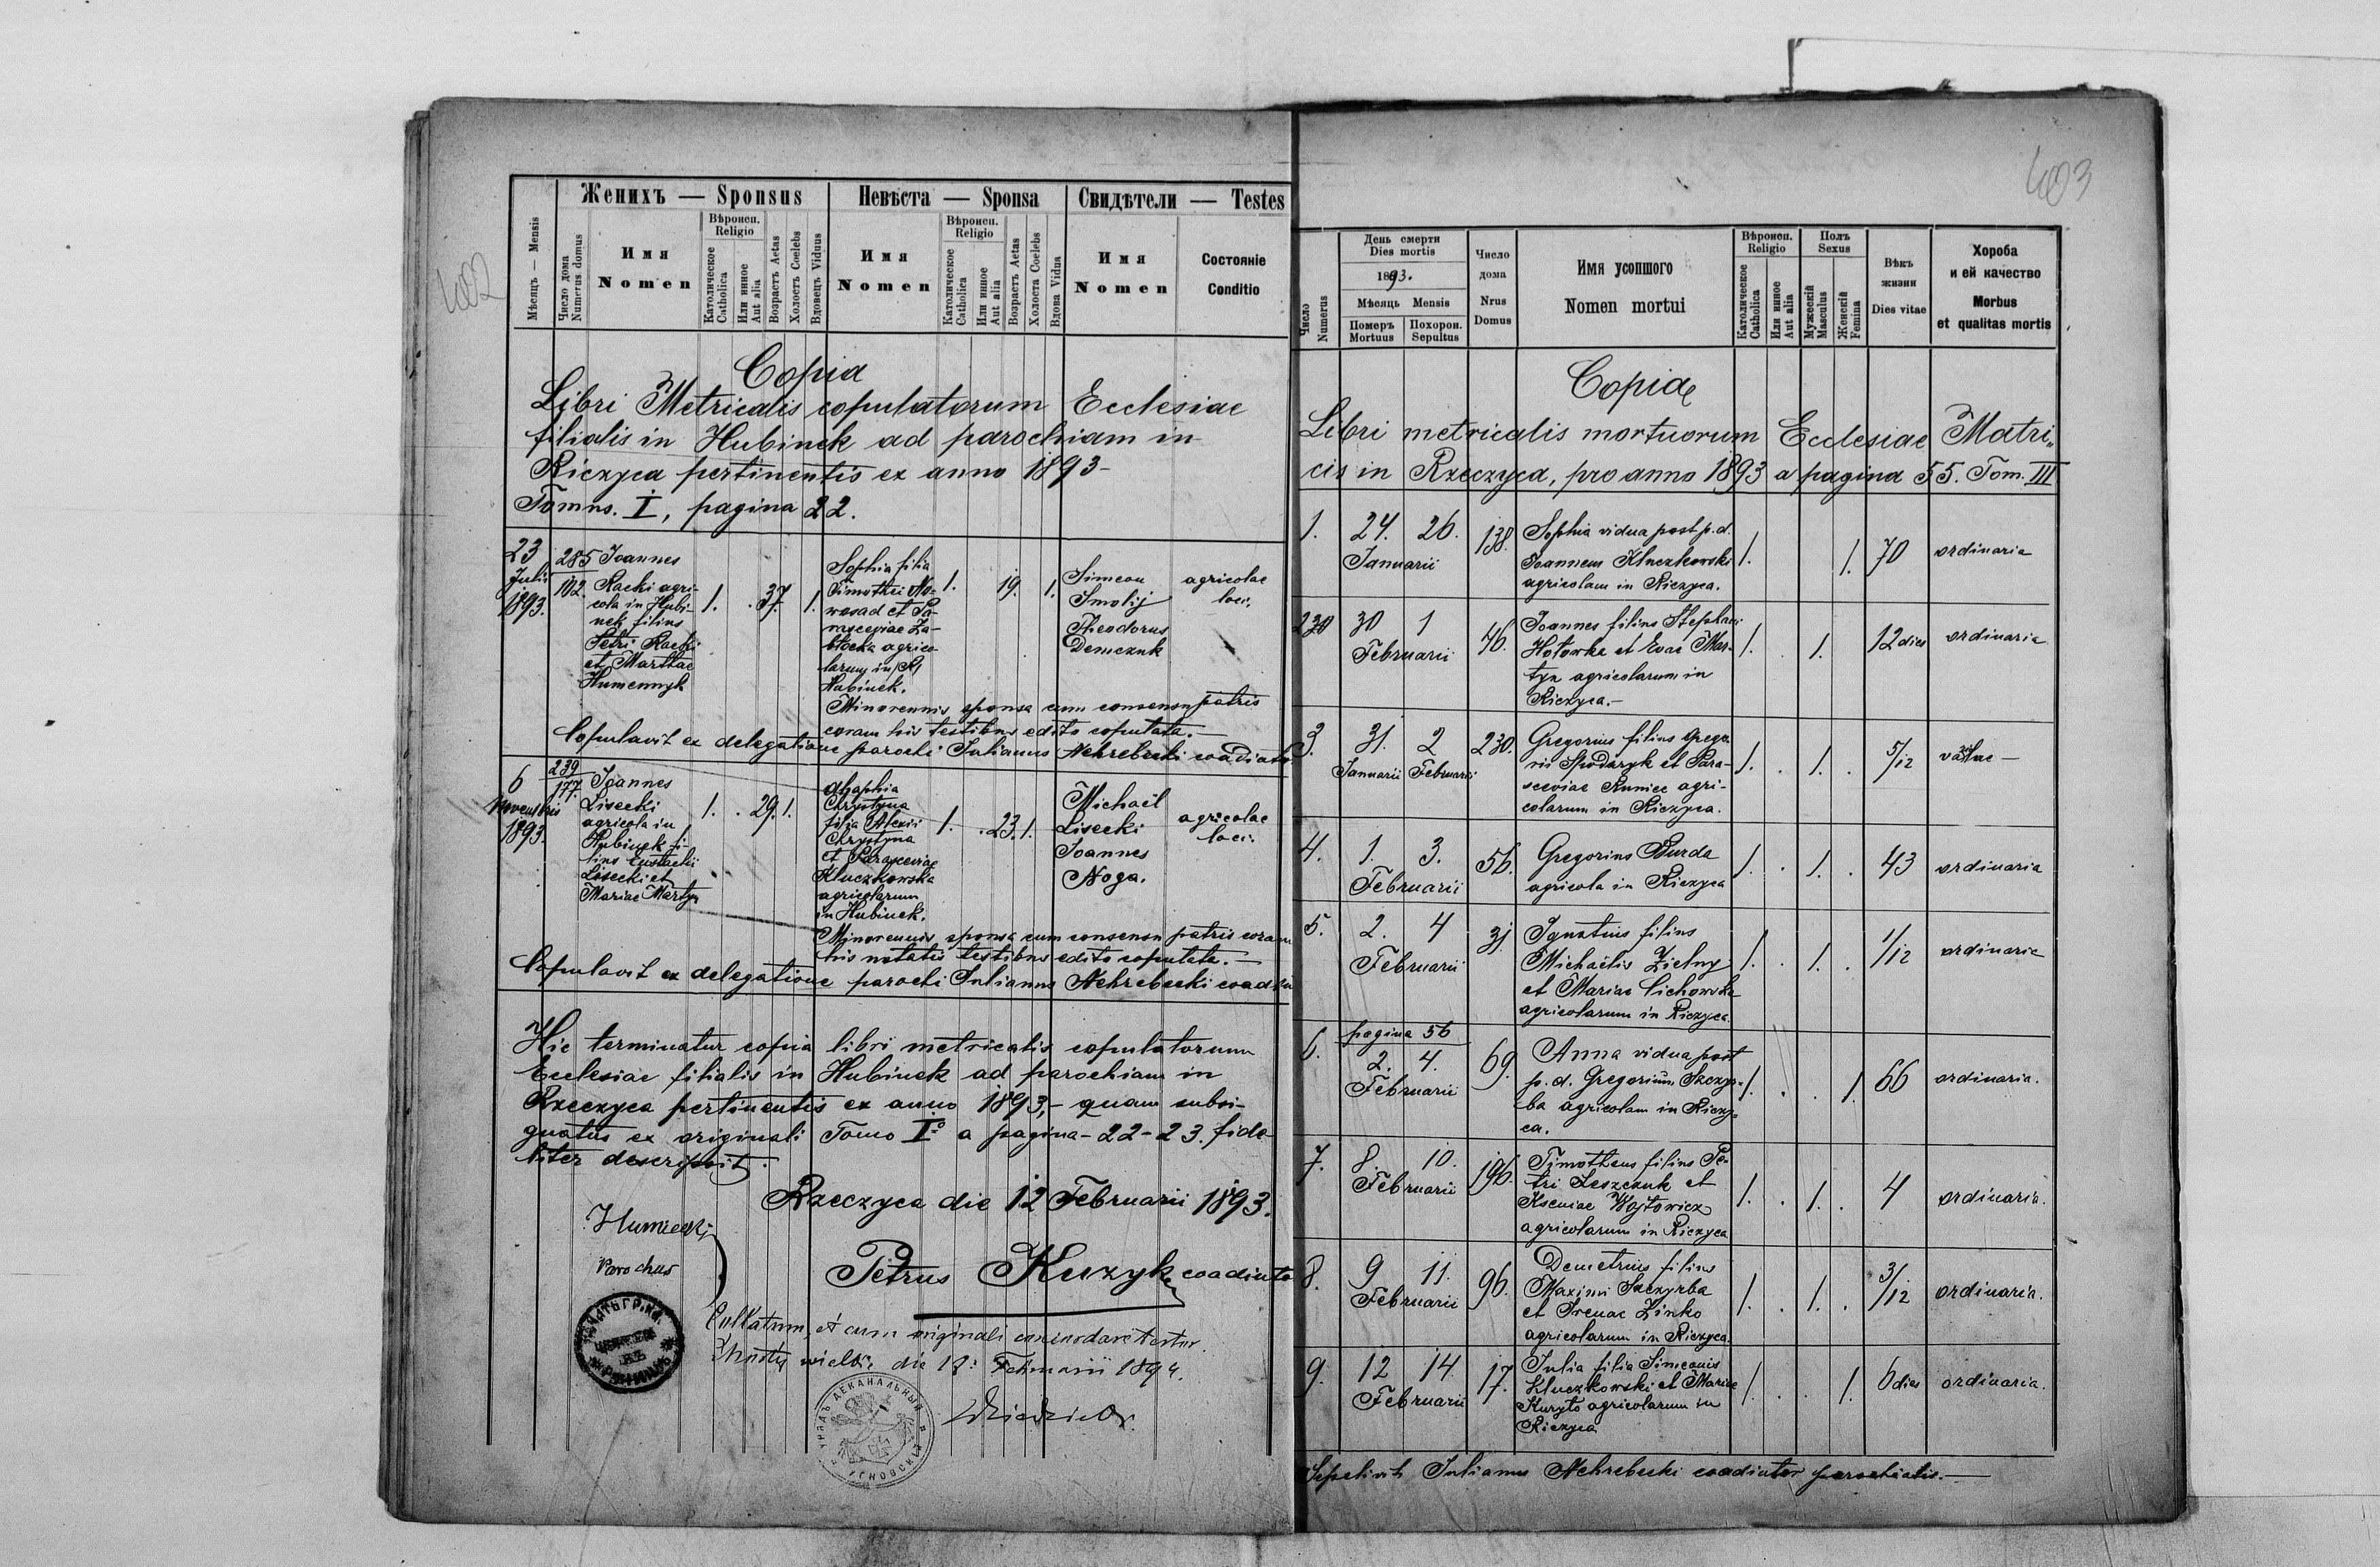 402
Женихъ — Sponsus
Невѣста — Sponsa
Свидѣтели — Testes
Мѣсяцъ — Mensis
Число дома
Numerus domus
Имя
Nomen
Вѣроисп.
Religio
Католическое
Catholica
Или инное
Aut alia
Возрастъ Aetas
Холостъ Coelebs
Вдовецъ Viduus
Имя
Nomen
Вѣроисп.
Religio
Католическое
Catholica
Или инное
Aut alia
Возрастъ Aetas
Холоста Coelebs
Вдова Vidua
Имя
Nomen
Состояніе
Conditio
Copia
Libri Metricalis copulatorum Ecclesiae
filialis in Hubinek ad parochiam in
Riczyca pertinentis ex anno 1893-
Tomus. I, pagina 22.
23
Julii
1893.
285
102.
Joannes
Racki agri-
cola in Hubi-
nek filius
Petri Racki
et Marthae
Humennyk
1. . 37. 1.
Sophia filia
Timothei No-
wosad et Pa-
rasceviae Za-
btocka agrico-
larum in
Hubinek.
1. 19. 1.
Simeon
Smolij
Theodorus
Demczuk
agricolae
loci.
Minorennis sponsa cum consensu patris
coram his testibus edito copulata.—
Copulavit ex delegatione parochi Julianus Nehrebecki coadiutor
6
Novembris
1893.
239
177.
Joannes
Lisecki
agricola in
Hubinek fi-
lius Eustachii
Lisecki et
Mariae Martyn
1. . 29. 1.
Ahaphia
Chrystyna
filia Alexii
Chrystyna
et Parasceviae
Kluczkowska
agricolarum
in Hubinek.
1. . 23. 1.
Michaël
Lisecki
Joannes
Noga.
agricolae
loci.
Minorennis sponsa cum consensu patris coram
his notatis testibus edito copulata.—
Copulavit ex delegatione parochi Julianus Nehrebecki
Hic terminatur copia libri metricalis copulatorum
Ecclesiae filialis in Hubinek ad parochiam in
Rzeczyca pertinentis ex anno 1893,- quam subsi-
gnatus ex originali Tomo I° a pagina-22-23. fide
liter descripsit.
Rzeczyca die 12 Februarii 1893.
Humiecki
Parochus
Petrus Kuzyk
Collatum, et cum originali concordare testor.
die 18. Februarii 1894.
403
Число
Numerus
День смерти
Dies mortis
1893.
Мѣсяцъ Mensis
Померъ
Mortuus
Похорон.
Sepultus
Число
дома
Nrus
Domus
Имя усопшого
Nomen mortui
Вѣроисп.
Religio
Католическое
Catholica
Или инное
Aut alia
Полъ
Sexus
Мужескій
Masculus
Женскій
Femina
Вѣкъ
жизни
Dies vitae
Хороба
и ей качество
Morbus
et qualitas mortis
Copia
Libri metricalis mortuorum Ecclesiae Matri„
cis in Rzeczyca, pro anno 1893 a pagina 55. Tom. III
1. 24. 26. 138.
Januarii
Sophia vidua post p. d.
Joannem Kluczkowski
agricolam in Riczyca.
1. 1. 70 ordinaria
30 1 46.
Februarii
Joannes filius Stephani
Hotowka et Evae Mar-
tyn agricolarum in
Riczyca.—
1. . 1. 12 dies ordinaria
3. 31. 2 230.
Januarii Februarii
Gregorius filius Grego-
rii Spodaryk et Para-
sceviae Rumiec agri-
colarum in Riczyca.
1. . 1. . 5/12
4. 1. 3. 56.
Februarii
Gregorius Burda
agricola in Riczyca
1. . 1. . 43 ordinaria
5. 2. 4 31
Februarii
Ignatius filius
Michaëlis Zielny
et Mariae Cichowska
agricolarum in Riczyca.
1. . 1. . 1/12 ordinaria
pagina 56
6. 2. 4. 69.
Februarii
Anna vidua post
p. d. Gregorium Szczyr-
ba agricolam in Riczy-
ca.
1. . . 1. 66 ordinaria.
7. 8. 10. 196.
Februarii
Timotheus filius Pe-
tri Leszczuk et
Kseniae Wojtowicz
agricolarum in Riczyca
1. . 1. . 4 ordinaria.
8. 9 11. 96.
Februarii
Demetrius filius
Maximi Szczyrba
et Irenae Zinko
agricolarum in Riczyca.
1. . 1. . 3/12 ordinaria.
9. 12 14. 17.
Februarii
Julia filia Simeonis
Kluczkowski et Mariae
Kuryto agricolarum in
Riczyca
1. . . 1. 6 dies ordinaria.
Sepelivit Julianus Nehrebecki coadiutor parochialis.—